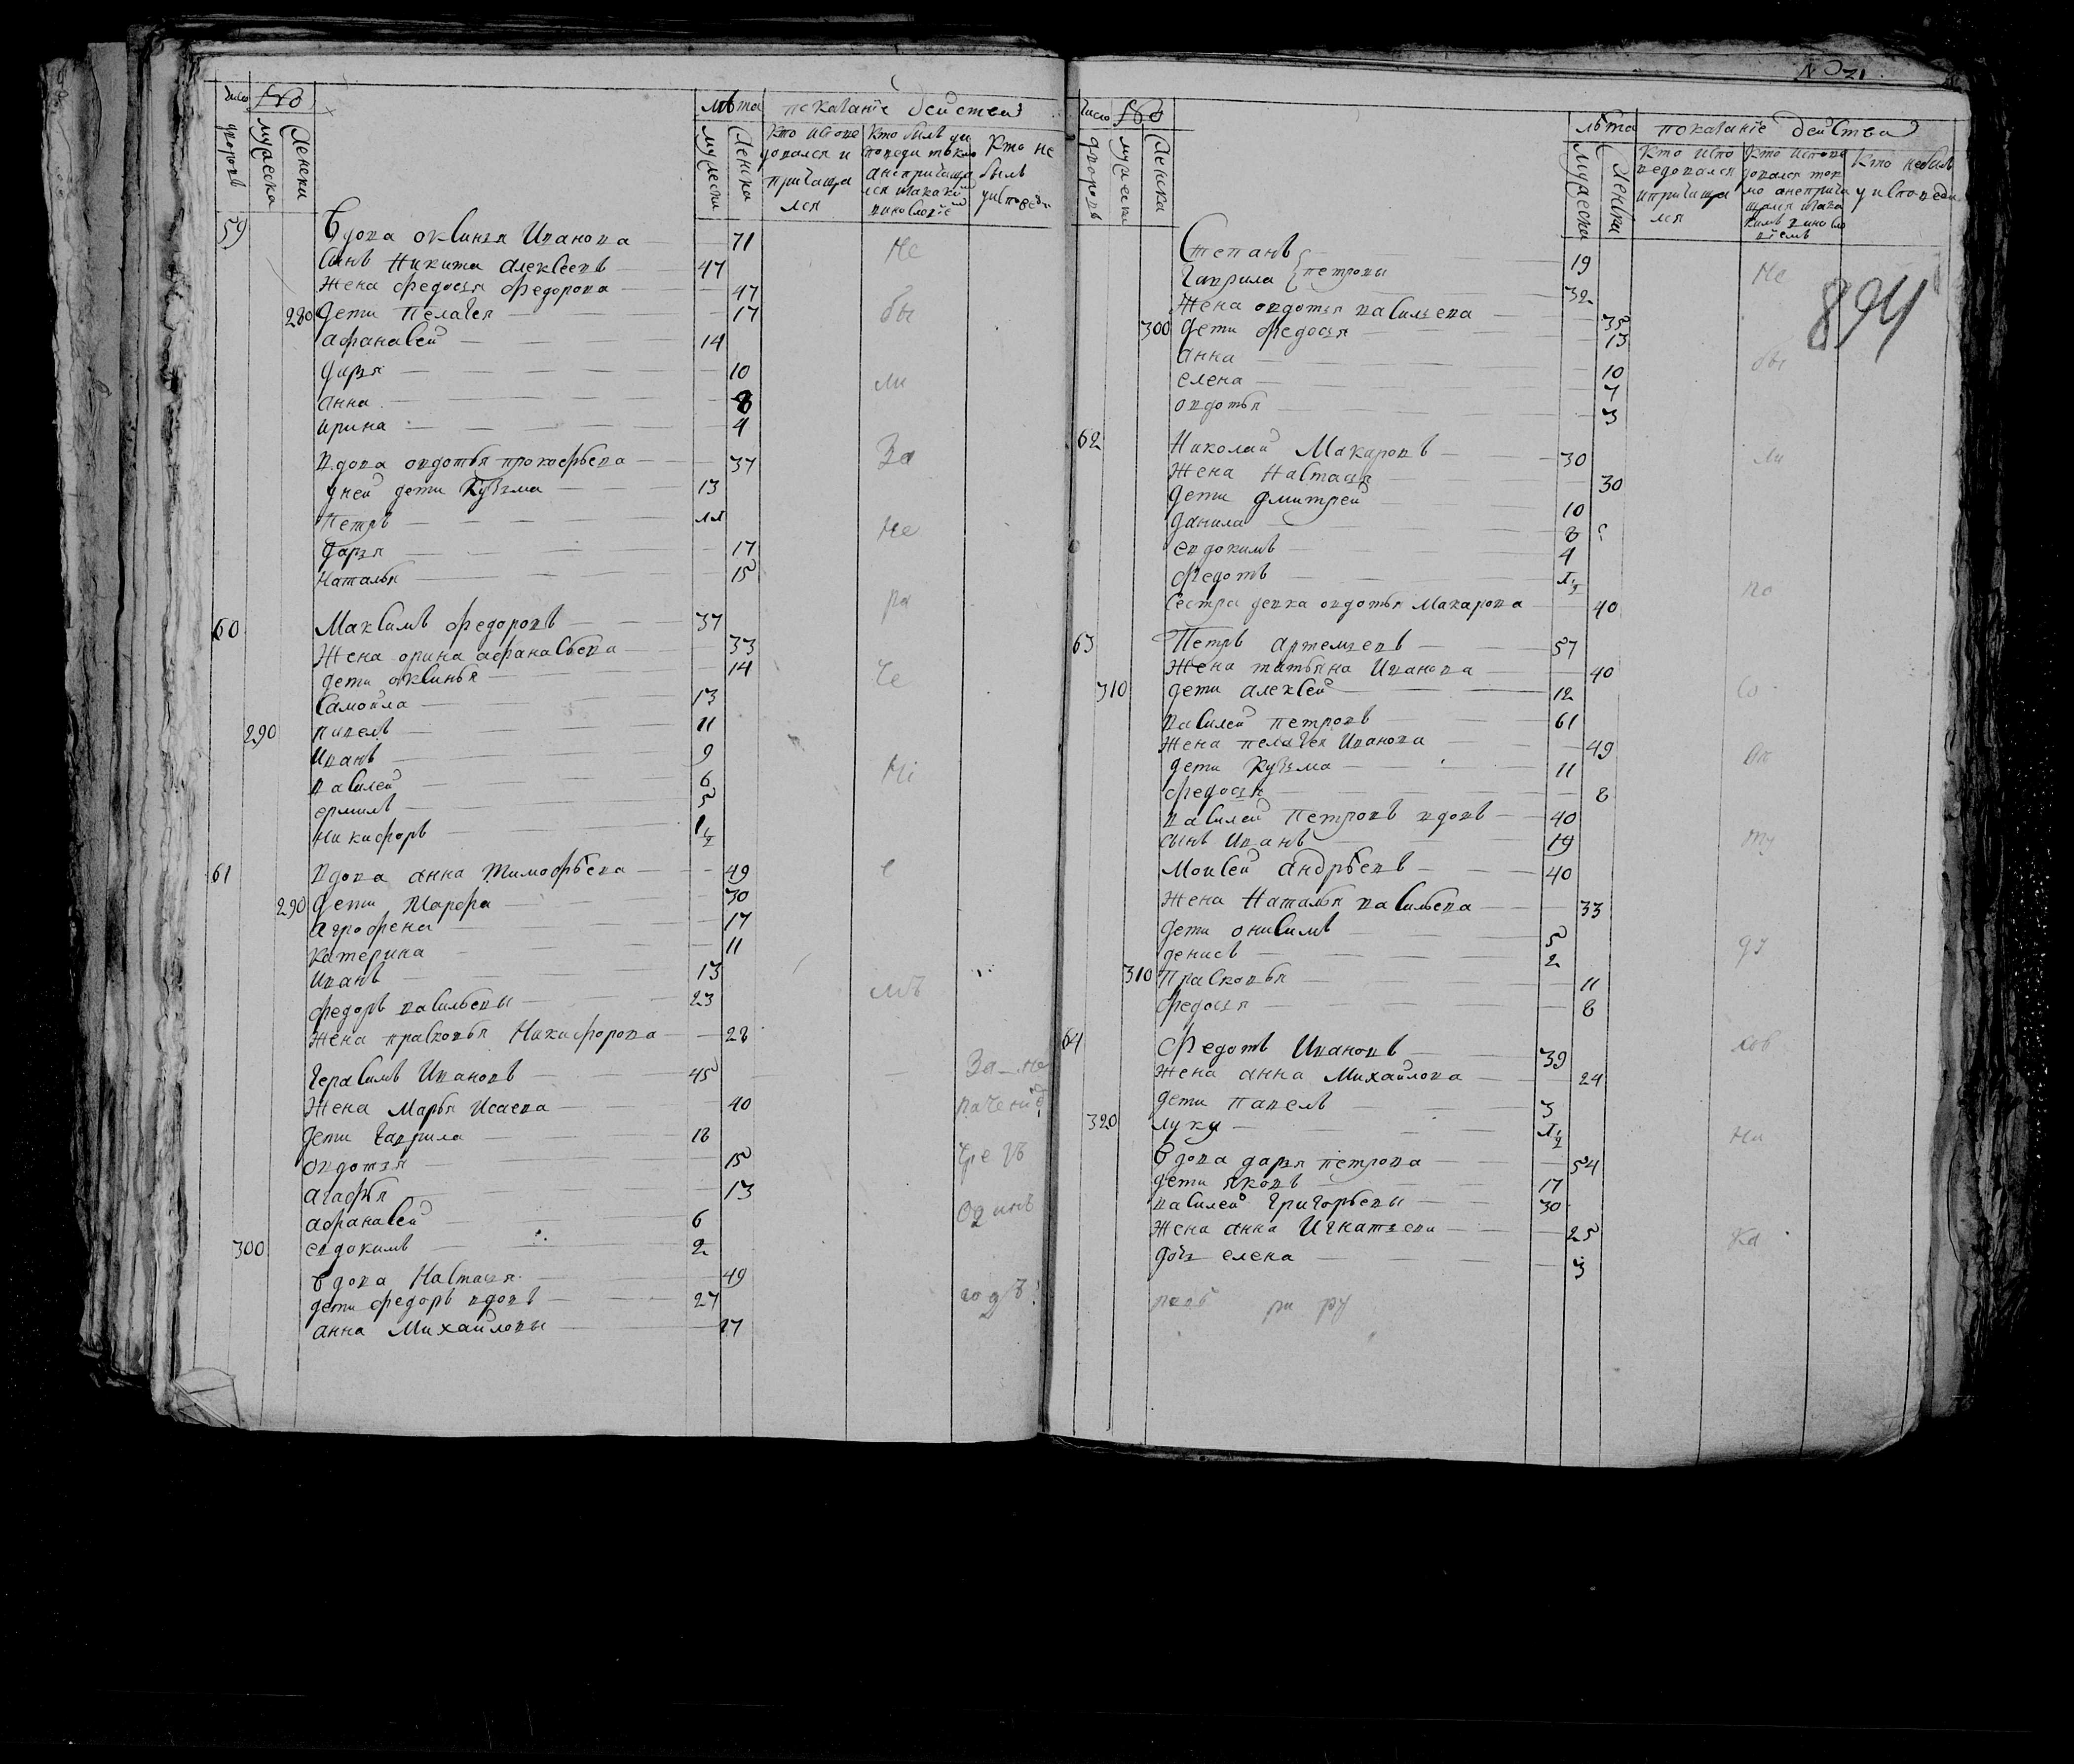 число лѣта показанїе действа
дворовъ мужеска женска мужески женска кто испове довался и причаща лся кто былъ у исповеди токмо а непричаща лся и за какой виновностїе Кто не былъ у исповеди
59 Вдова оксинья Иванова 71
Сынъ Никита алексеевъ 47
Жена федосья федорова 47
280 Дети Пелагея 17
афанасей 14
Дарья 10
анна 8
ирина 4
вдова овдотья прокофьева 37
у ней дети Кузма 13
Петръ 11
дарья 17
наталья 15
60 Максимъ федоровъ 37
Жена орина афанасьева 33
дети оксинья 14
Самойла 13
290 павелъ 11
Иванъ 9
василей 6
ермилъ 5
Никифоръ
61 Вдова анна Тимофѣева 49
290 Дети Марфа 30
Агрофена 17
катерина 11
иванъ 13
федоръ васильевы 23
Жена прасковья Никифорова 28
Герасимъ Ивановъ 45
Жена Марья Исаева 40
Дети Гаврила 18
овдотья 15
агафья 13
афанасей 6
300 евдокимъ 2
Вдова Настасья 49
дети федоръ вдовъ 27
анна Михайловы 17
Не
бы
ли
За
не
ра
че
нї
е
мъ
За не
рачениě
чрезъ
одинъ
годъ
№ 71
число лѣта показанїе действа
дворовъ мужески женска мужески женски кто испо ведовался и причаща лся кто испове довался ток мо а неприча щался и за ка кимъ виносло вїемъ кто небылъ у исповеди
894
Степанъ 19
Гаврила петровы 32
Жена овдотья васильева 35
300 Дети федосья 13
анна 10
елена 7
овдотья 3
62 Николай Макаровъ 30
Жена Настасья 30
дети дмитрей 10
данила 8
евдокимъ 4
федотъ
Сестра девка овдотья Макарова 40
63 Петръ артемьевъ 57
Жена татьяна Иванова 40
310 дети алексей 12
василей петровъ 61
Жена пелагея Иванова 49
дети Кузма 11
федосья 8
василей Петровъ вдовъ 40
сынъ Иванъ 19
Моисей андрѣевъ 40
Жена Наталья васильева 33
дети онисимъ 5
денисъ 2
310 Прасковья 11
федосья 8
64 Федотъ Ивановъ 39
Жена анна Михайлова 24
дети павелъ 3
320 лука
Вдова дарья петрова 54
дети яковъ 17
василей Григорьевы 30
Жена анна Игнатьева 25
дочь елена 3
Не
бы
ли
по
со
вѣ
ту
ду
хов
ни
ка